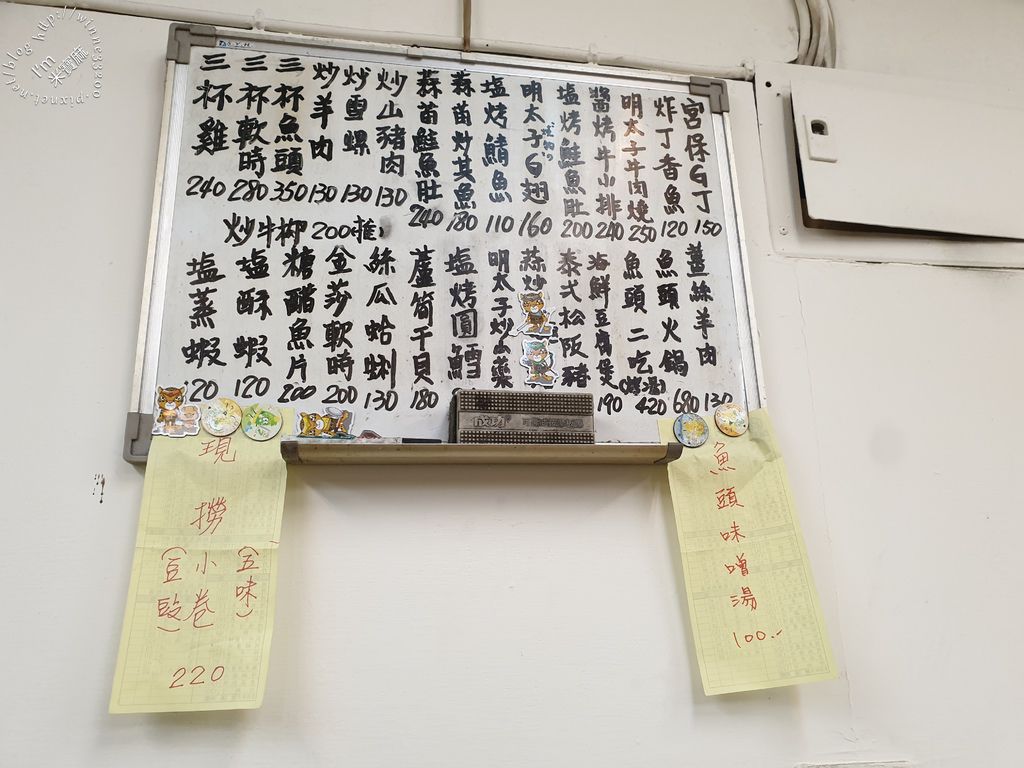 宮保G丁 150
炸丁香魚 120
明太子牛肉燒 250
醬烤牛小排 240
塩烤鮭魚肚 200
明太子G翅 160
塩烤鯖魚 110
蒜苗炒其魚 180
蒜苗鮭魚肚 240
炒山豬肉 130
炒雪螺 130
炒羊肉 130
三杯魚頭 350
三杯軟時 280
三杯雞 240
炒牛柳 200(推)
薑絲羊肉 130
魚頭火鍋 680
魚頭二吃 420
海鮮豆腐煲 190
泰式松阪豬
蒜炒
明太子炒山藥
塩烤圓鱈
蘆筍干貝 180
絲瓜蛤蜊 130
金莎軟時 200
糖醋魚片 200
塩酥蝦 120
塩蒸蝦 120
魚頭味噌湯
100.-
現撈
小卷
(五味)
(豆豉)
220